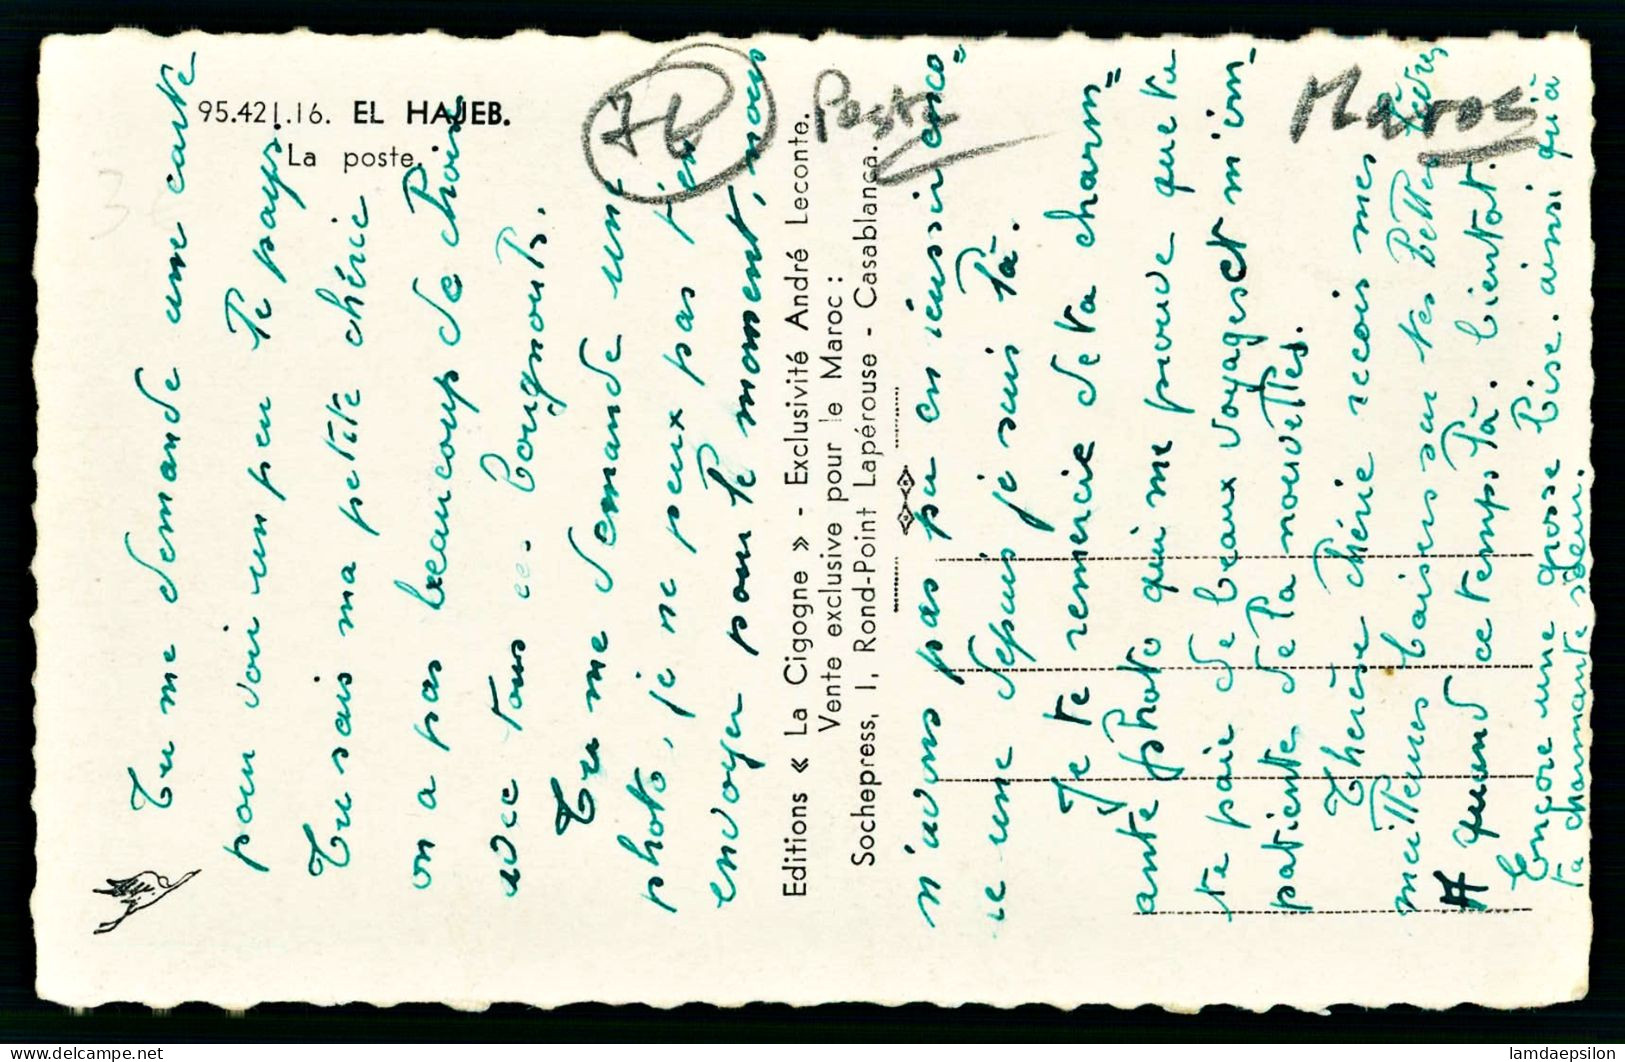 95.421.16. EL HAJEB.
La poste.
7L
Poste
Maroc
Tu me demande une carte
pour voir un peu le pays.
Tu sais ma petite chérie
on a pas beaucoup de choix
avec tous ces bougnouls.
Tu me demande une
photo, je ne peux pas t'en
envoyer pour le moment, nous
Editions « La Cigogne » - Exclusivité André Leconte.
Vente exclusive pour le Maroc :
Sochepress, 1, Rond-Point Lapérouse - Casablanca.
n'avons pas pu en réussir enco=
re une depuis je suis là.
Je te remercie de ta charm=
ante photo qui me prouve que tu
te paie de beaux voyages et m'im=
patiente de la nouvelles.
Therèse chérie recois mes
meilleures baisers sur tes belles lèvres
quand ce temps là. bientot.
Encore une grosse bise. ainsi qu'à
ta charmante sœur.
lamdaepsilon